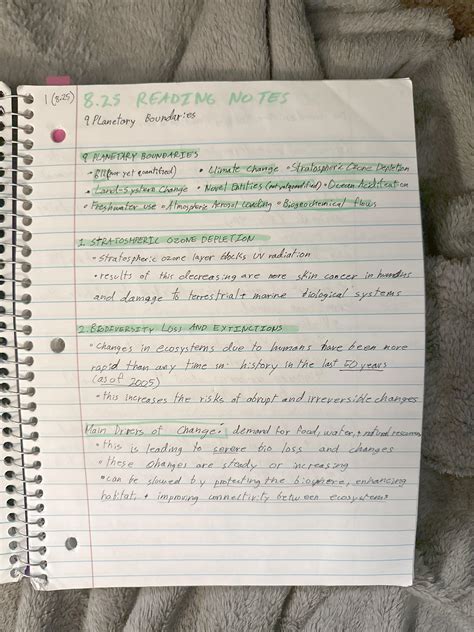 1 (8.25) 8.25 READING NOTES
9 Planetary Boundaries
9 PLANETARY BOUNDARIES
• BII (not yet quantified) • Climate change • Stratospheric Ozone Depletion
• Land-system change • Novel Entities (not yet quantified) • Ocean Acidification
• Freshwater use • Atmospheric Aerosol Loading • Biogeochemical flows
1. STRATOSPHERIC OZONE DEPLETION
• stratospheric ozone layer blocks UV radiation
• results of this decreasing are more skin cancer in humans
and damage to terrestrial + marine biological systems
2. BIODIVERSITY LOSS AND EXTINCTIONS
• changes in ecosystems due to humans have been more
rapid than any time in history in the last 50 years
(as of 2005)
• this increases the risks of abrupt and irreversible changes
Main Divers of Change: demand for food, water, + natural resources
• this is leading to severe bio loss and changes
• these changes are steady or increasing
• can be slowed by protecting the biosphere, enhancing
habitat, + improving connectivity between ecosystems